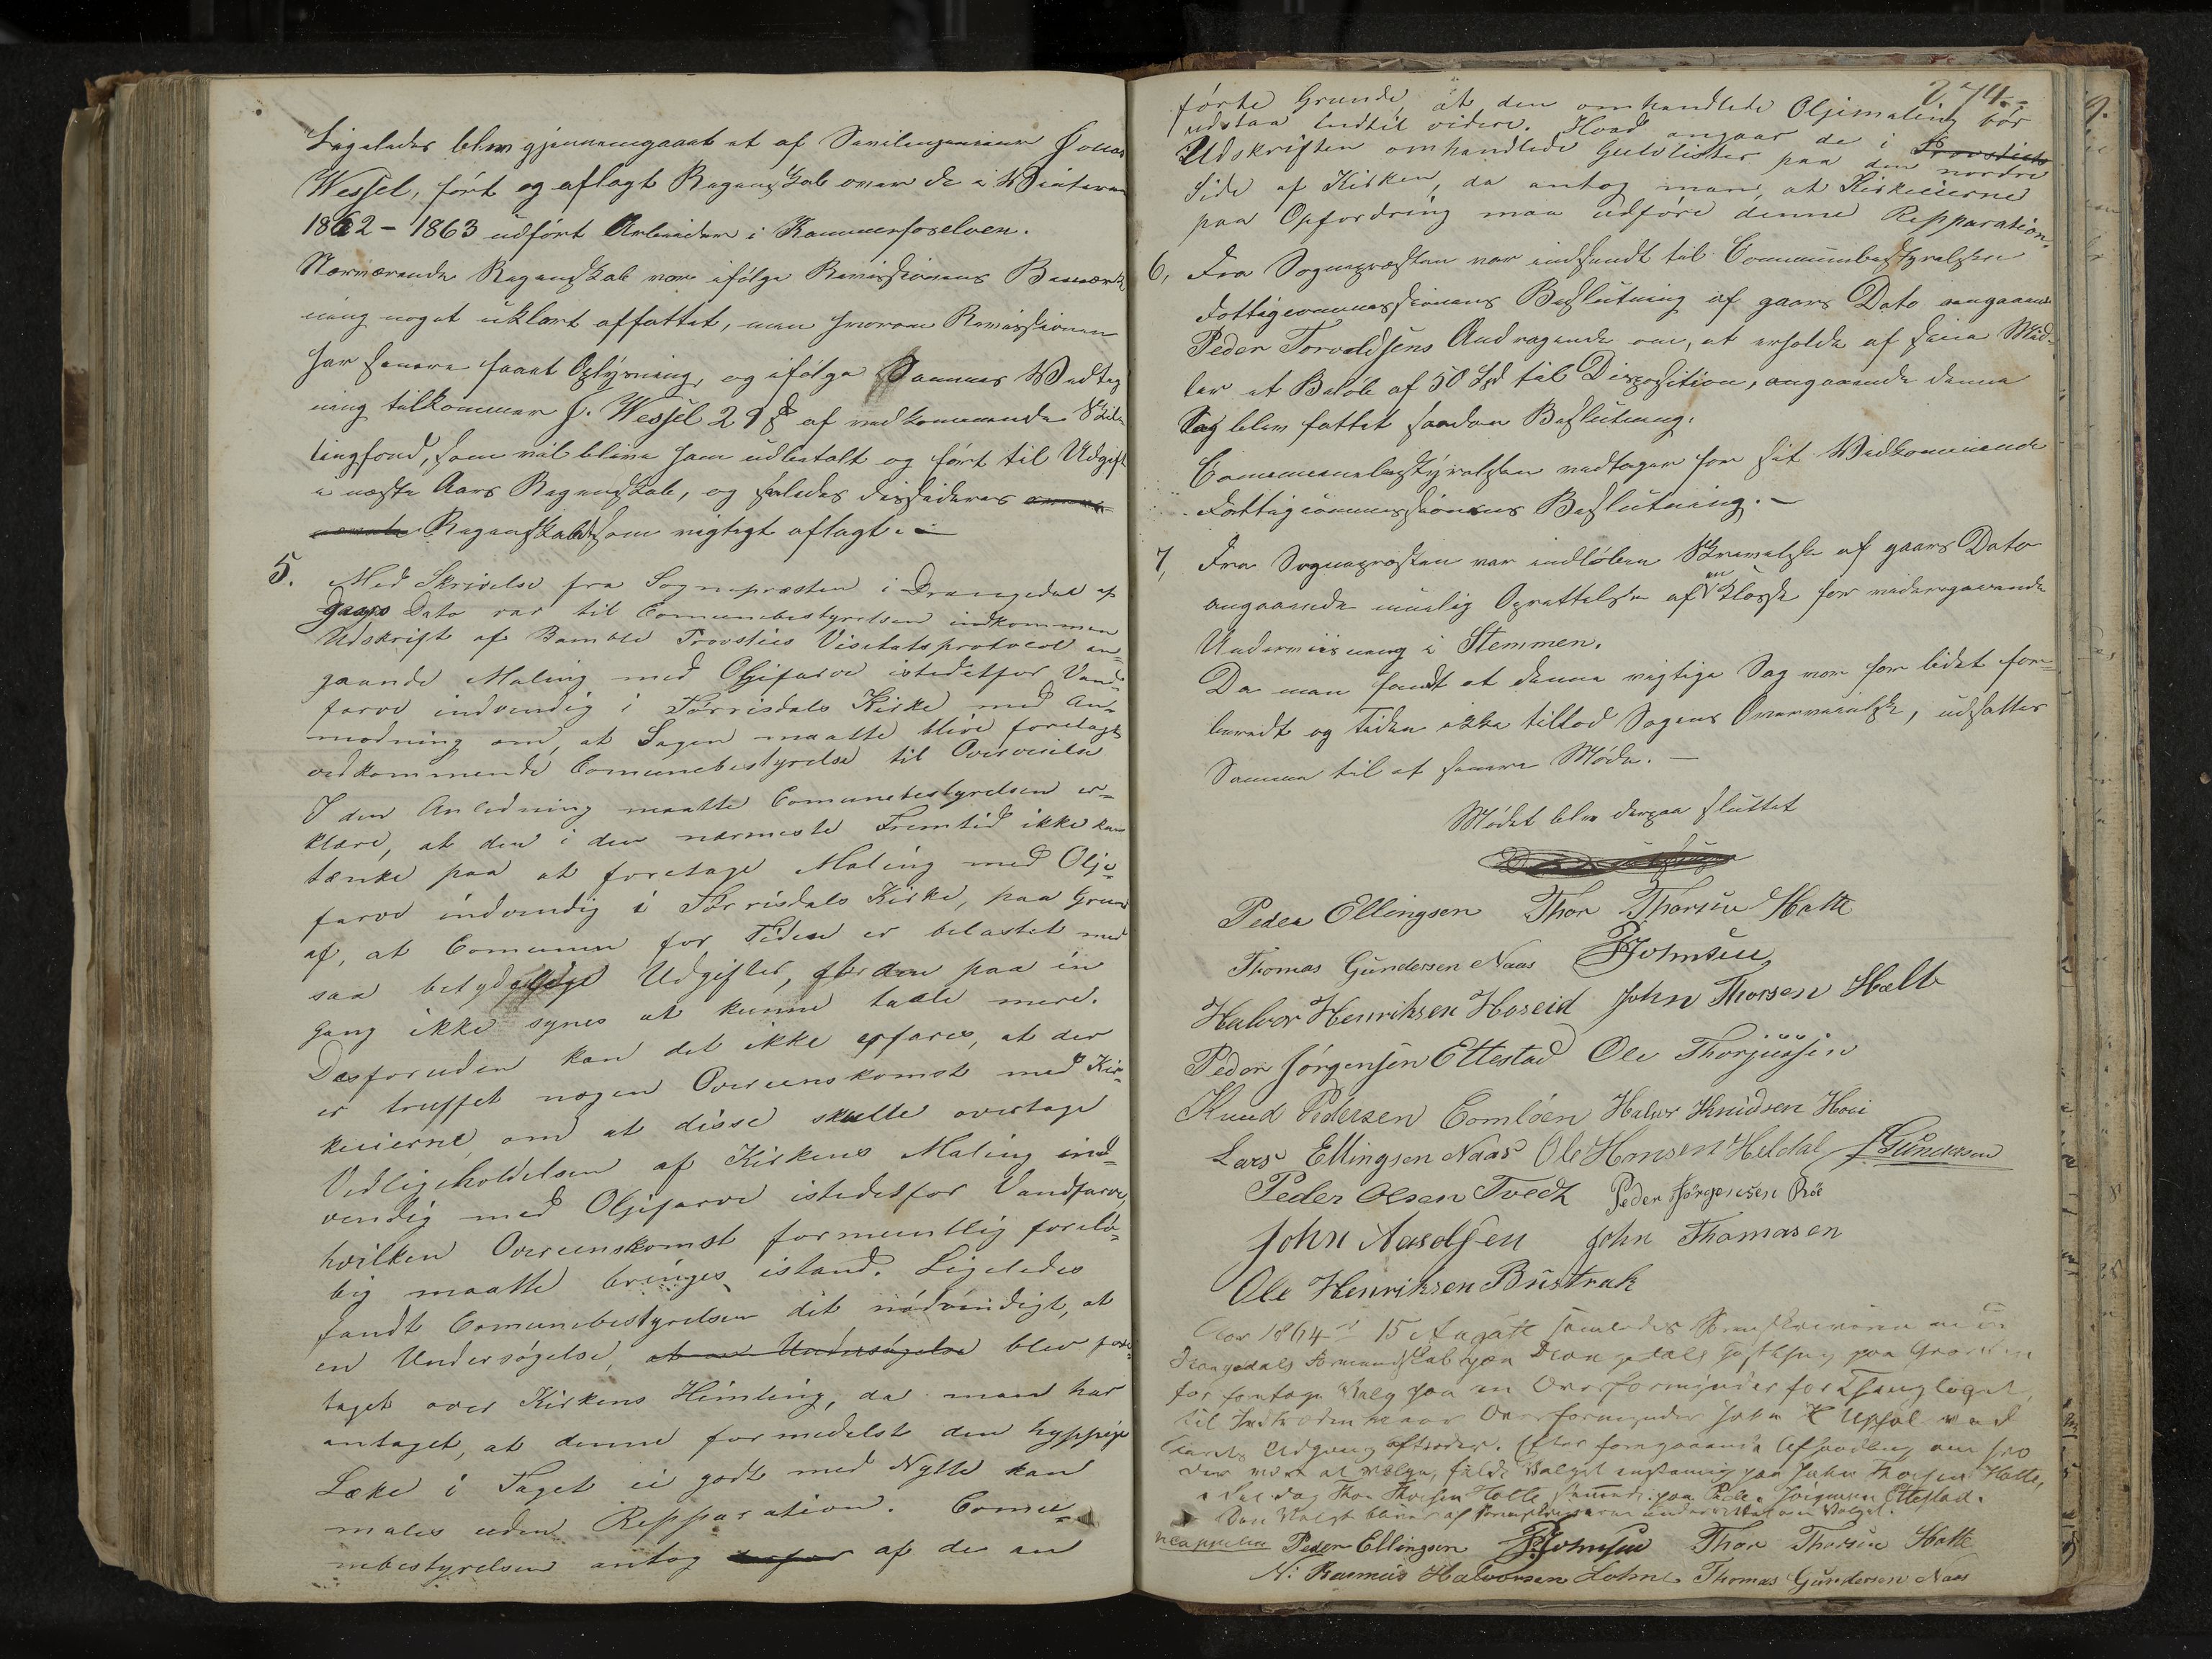 Ligeledes blev gjennemgaaet et af Jonas
Wessel, ført og aflagt Regnskab over de i Vinteren
1862 - 1863 udført Arbeider i Kammerfoselven.
Nærværende Regnskab var ifølge Revisionens Bemærk
ning noget uklart affattet, men hvorom Revisionen
har senere faaet Oplysning, og ifølge Sammes Vedteg
ning tilkommer J. Wessel 29 ß af vedkommende
som vil blive ham udbetalt og ført til Udgift
i næste Aars Regnskab, og saaledes desideres
Regenskabet som rigtigt aflagt. —
5. Med Skrivelse fra Sognepræsten i Drangedal af
Gaars Dato var til Comunebestyrelsen indkommen
Udskrift af Bamble Provsties Visitatsprotocol an-
gaaende Maling med Oljefarve istedetfor Vand-
farve indvendig i Tørrisdals Kirke med An-
modning om, at Sagen maatte blive foretaget
vedkommende Comunebestyrelse til Overveielse
I den Anledning maatte Comunebestyrelsen er-
klære, at den i den nærmeste Fremtid ikke kan
tænke paa at foretage Maling med Olje-
farve indvendig i Tørrisdals Kirke, paa Grund
af, at Comunen for Tiden er belastet med
saa betydelige Udgifter, at den paa en
Gang ikke synes at kunne taale mere.
Desforuden kan det ikke erfares, at der
er truffet nogen Overeenskomst med Kir-
keeierne, om at disse skulle overtage
Vedligeholdelsen af Kirkens Maling ind-
vendig med Oljefarve istedetfor Vandfarve,
hvilken Overeenskomst formentlig forelø-
big maatte bringes istand. Ligeledes
fandt Comunebestyrelsen det nødvendigt, at
en Undersøgelse, at en Undersøgelse blev fore-
taget over Kirkens Himling, da man har
antaget, at denne formedelst den hyppige
Læke i Taget ei godt med Nytte kan
males uden Repparation. Comu-
nebestyrelsen antog af de an
274.-
førte Grunde, at den omhandlede Oljemaling bør
udstaa indtil videre. Hvad angaar de i Provstiets
Udskriften omhandlede Gulvlister paa den nordre
Side af Kirken, da antog man, at Kirkeeierne
paa Opfordring maa udføre denne Repparation.
6, Fra Sognepræsten var indsendt til Communebestyrelsen
Fattigcommissionens Beslutning af gaars Dato angaaende
Peder Torvaldsens Andragende om, at erholde af sine Mid-
ler et Beløb af 50 Spd til Disposition, angaaende denne
Sag blev fattet saadan Beslutning:
Communebestyrelsen vedtager for sit Vedkommende
Fattigcommissionens Beslutning. —
7, Fra Sognepræsten var indløben Skrivelse af gaars Dato
angaaende muelig Oprettelse af en Klasse for videregaaende
Underviisning i Stemmen.
Da man fandt at denne vigtige Sag var for lidet for-
beredt og Tiden ikke tillod Sagens Overveielse, udsattes
Samme til et senere Møde. —
Mødet blev derpaa sluttet
Peder Ellingsen Thor Thorsen Holte
Thomas Gundersen Naas PJohnsen
Halvor Henriksen Hoseid John Thorsen Holte
Peder Jørgensen Ettestad Ole Thorjussen
Knud Pedersen Eomløen Halvor Knudsen Hoei
Lars Ellingsen Naas Ole Hansen Heldal Gundersen
Peder Olsen Tvedt Peder Jørgensen Röe
John Aasolfsen John Thomasen
Ole Henriksen Bustrak
Aar 1864 d 15 August samledes Sorenskriveren med
Drangedals Formandskab paa Drangedals
for foretage Valg paa en Overformynder for Thinglaget,
til Overformynder John
Aarets Udgang aftræder. Efter foregaaende om hvo
der var at vælge, faldt Valget enstemmig paa John Thorsen Holte,
Thor Thorsen Holte paa Peder Jørgensen Ettestad.
Peder Ellingsen PJohnsen Thor Thorsen Holte
N: Rasmus Halvorsen Lohne Thomas Gundersen Naas